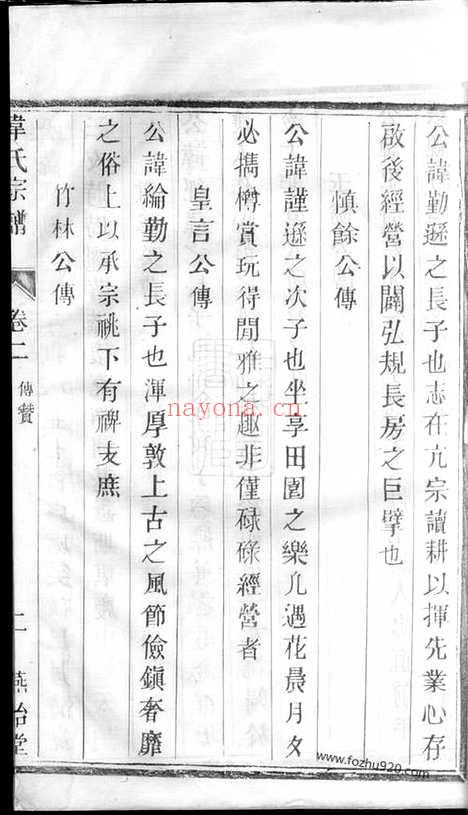 公諱勤遜之長子也志在亢宗讀耕以揮先業心存
啟後經營以闢弘規長房之巨擘也
慎餘公傳
公諱謹遜之次子也坐享田園之樂凡遇花晨月夕
必攜樽賞玩得閒雅之趣非僅碌碌經營者
皇言公傳
公諱綸勤之長子也渾厚敦上古之風節儉鎮奢靡
之俗上以承宗祧下有裨支庶
竹林公傳
韋氏宗譜
卷二
傳贊
二
燕詒堂
nayona.cn
www.fozhu920.com